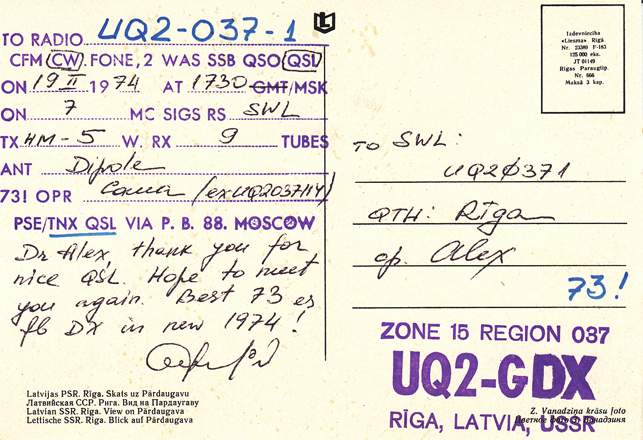 TO RADIO UQ2-037-1
CFM CW, FONE, 2 WAS SSB QSO QSL
ON 19 II 1974 AT 1730 GMT/MSK
ON 7 MC SIGS RS SWL
TX HM-5 W. RX 9 TUBES
ANT Dipole
73! OPR Саша (ex UQ2037/14)
PSE/TNX QSL VIA P. B. 88. MOSCOW
Dr Alex, thank you for
nice QSL. Hope to meet
you again. Best 73 es
fb DX in new 1974!
Latvijas PSR. Rīga. Skats uz Pārdaugavu
Латвийская ССР. Рига. Вид на Пардаугаву
Latvian SSR. Riga. View on Pārdaugava
Lettische SSR. Riga. Blick auf Pārdaugava
Izdevniecība
«Liesma» Rīgā.
Nr. 23380 F-163
125 000 eks.
JT 01149
Rīgas Paraugtip.
Nr. 666
Maksā 3 kap.
TO SWL:
UQ2Ø371
QTH: Rīga
op. Alex
73!
ZONE 15 REGION 037
UQ2-GDX
RĪGA, LATVIA, USSR
Z. Vanadziņa krāsu foto
Цветное фото З. Ванадзиня